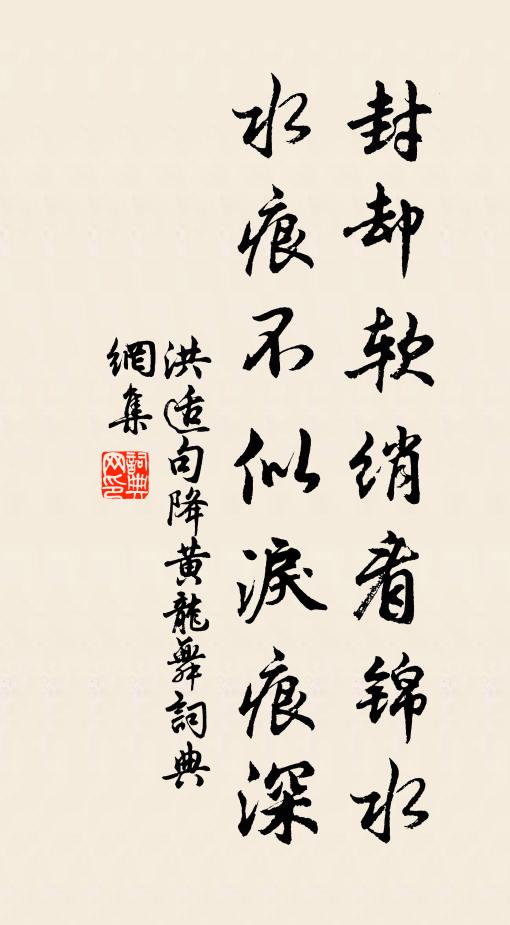 封却软绡看锦水
水痕不似泪痕深
洪适句降黄龍舞詞典
網集
詞典网印